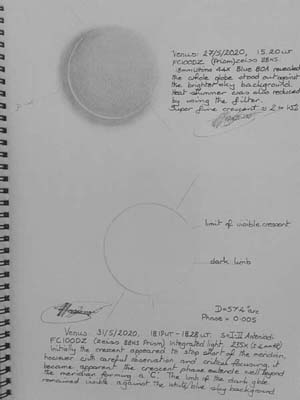 Venus: 27/5/2020, 15.20UT
FC100DZ (Prism) Zeiss
44X Blue 80A revealed
the whole globe stood out against
the brighter sky background.
Heat shimmer was also reduced
by using the filter.
Super fine crescent
limit of visible crescent
dark limb
D=57.4" arc
Phase = 0.005
Venus: 31/5/2020, 18.19UT - 18.28UT. Antoniadi
FC100DZ (Zeiss integrated light, 225X
Initially the crescent appeared to stop short of the meridian,
however with careful observation and critical focusing, it
became apparent the crescent phase extends well beyond
the meridian forming a C. The limb of the dark globe
remained visible against the white/blue sky background